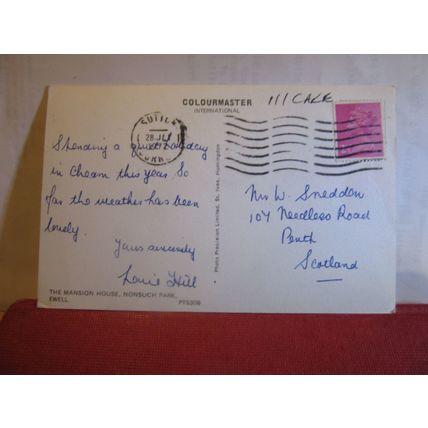 COLOURMASTER
INTERNATIONAL
111 CAKE
SUTTON
28 JLY
SURREY
Spending a quiet holiday
in Cheam this year. So
far the weather has been
lovely.
Yours sincerely
Louie Hill
THE MANSION HOUSE, NONSUCH PARK,
EWELL
Photo Precision Limited, St. Ives, Huntingdon
Mr W. Sneddon
107 Needless Road
Perth
Scotland